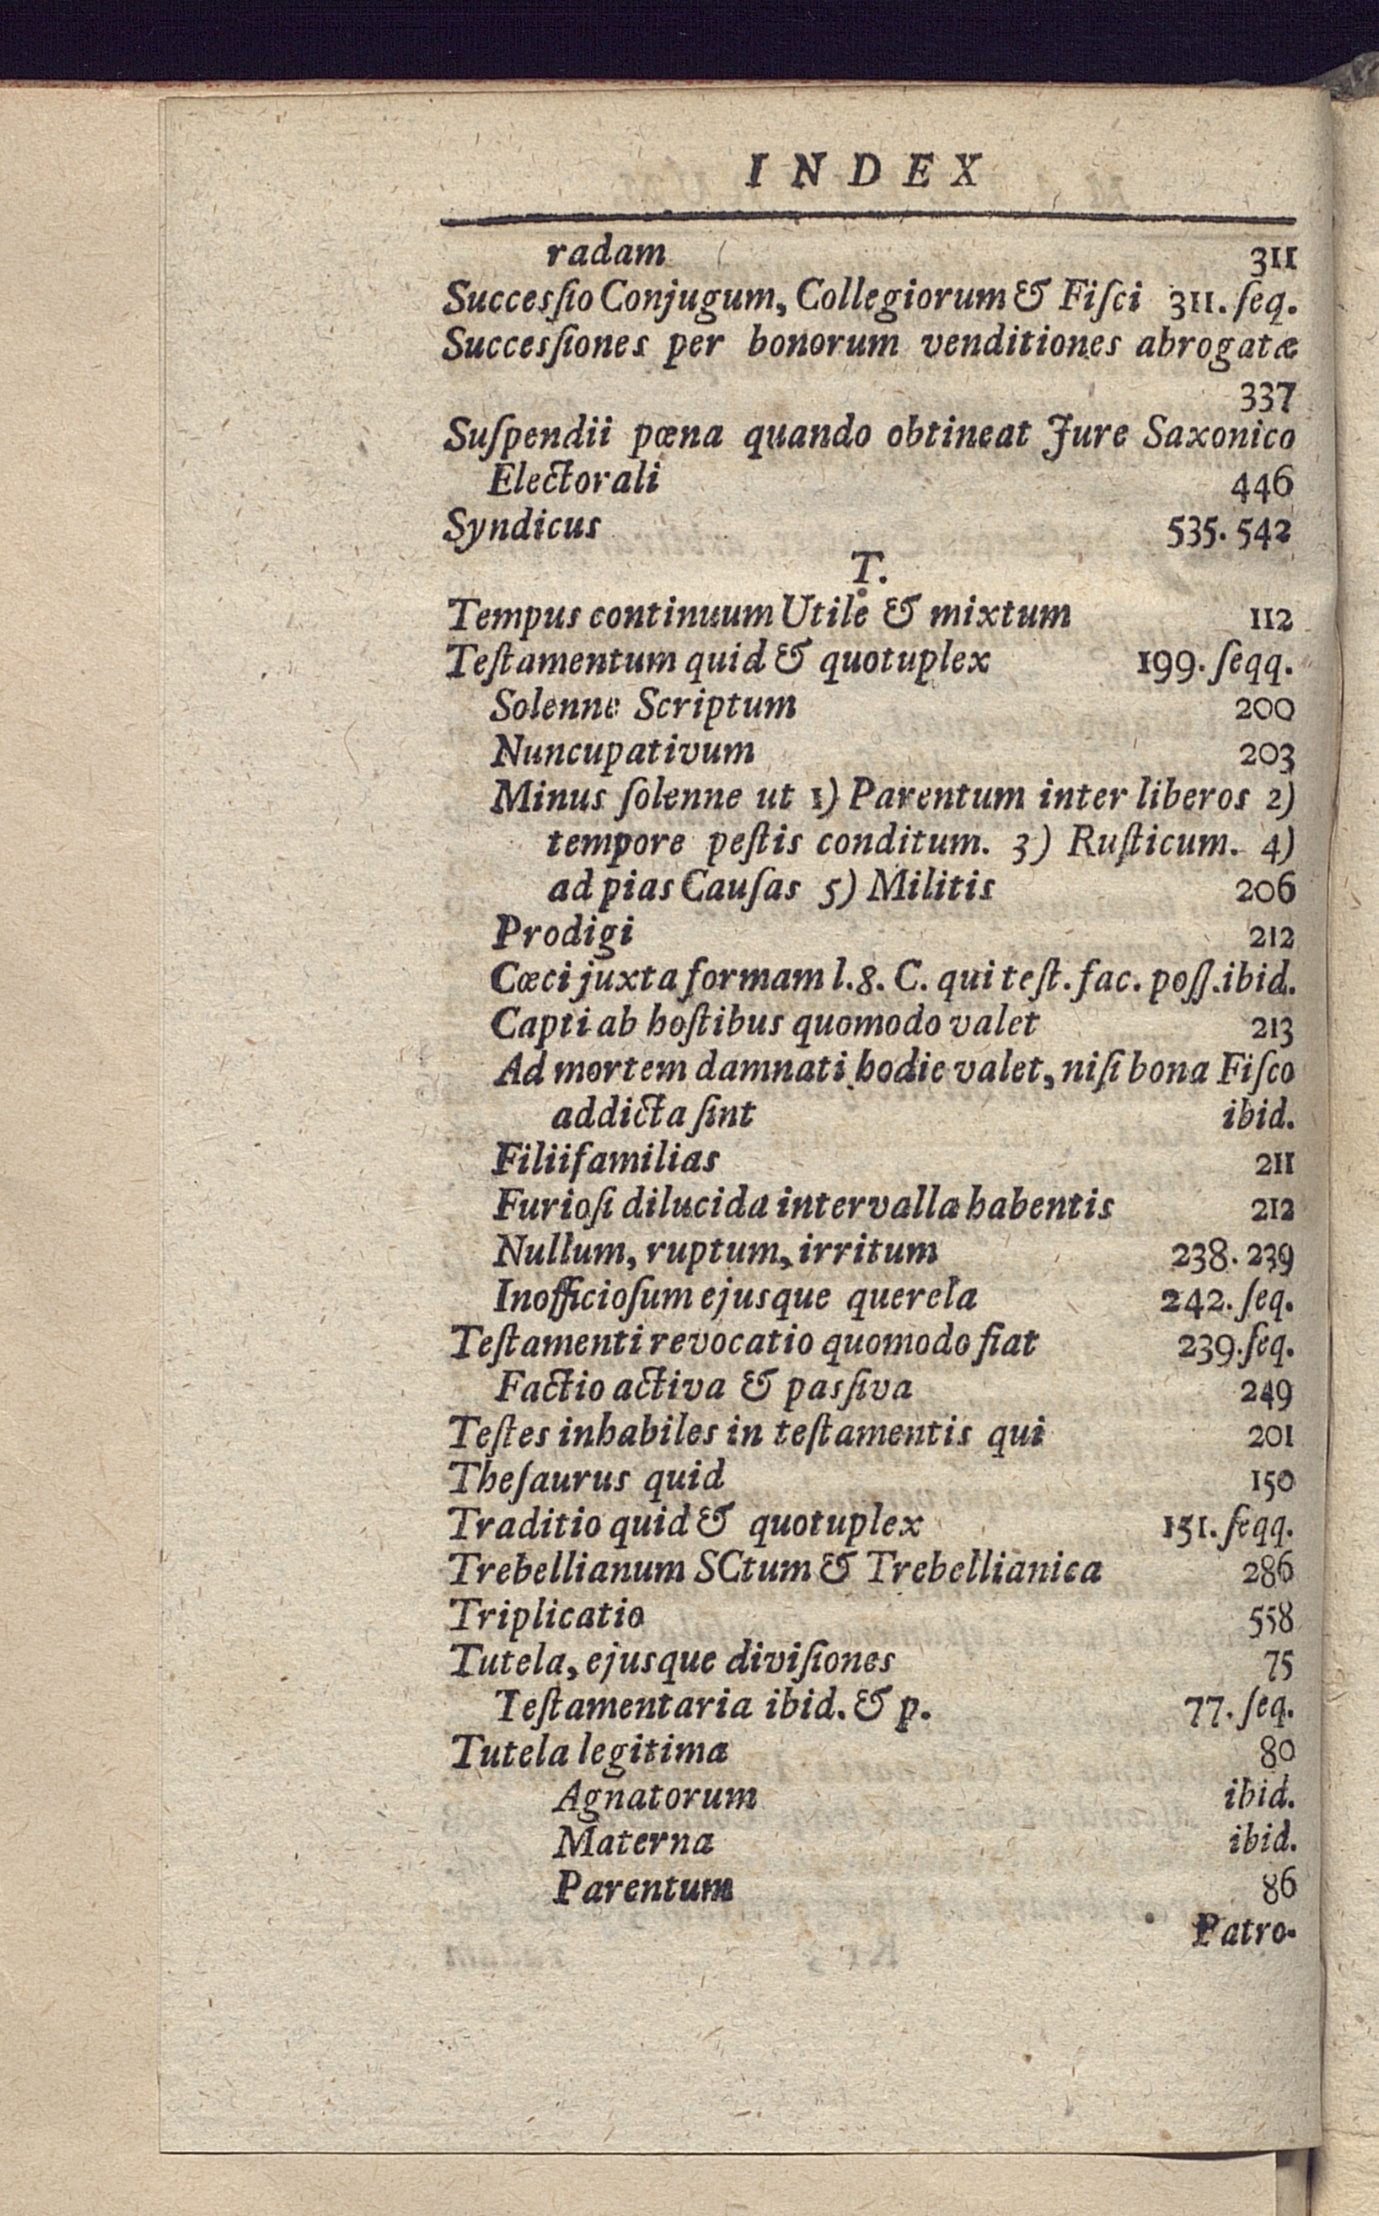 INDEX
radam 311
Succesſio Conjugum, Collegiorum & Fiſci 311. ſeq.
Succesſiones per bonorum venditiones abrogatæ
337
Suſpendii pœna quando obtineat Jure Saxonico
Electorali 446
Syndicus 535. 542
T.
Tempus continuum Utile & mixtum 112
Teſtamentum quid & quotuplex 199. ſeqq.
Solenne Scriptum 200
Nuncupativum 203
Minus ſolenne ut 1) Parentum inter liberos 2)
tempore peſtis conditum. 3) Ruſticum. 4)
ad pias Cauſas 5) Militis 206
Prodigi 212
Cœci juxta formam l. 8. C. qui teſt. fac. poſſ. ibid.
Capti ab hoſtibus quomodo valet 213
Ad mortem damnati hodie valet, niſi bona Fiſco
addicta ſint ibid.
Filiifamilias 211
Furioſi dilucida intervalla habentis 212
Nullum, ruptum, irritum 238. 239
Inofficioſum ejusque querela 242. ſeq.
Teſtamenti revocatio quomodo fiat 239. ſeq.
Factio activa & pasſiva 249
Teſtes inhabiles in teſtamentis qui 201
Theſaurus quid 150
Traditio quid & quotuplex 151. ſeqq.
Trebellianum SCtum & Trebellianica 286
Triplicatio 558
Tutela, ejusque diviſiones 75
Teſtamentaria ibid. & p. 77. ſeq.
Tutela legitima 80
Agnatorum ibid.
Materna ibid.
Parentum 86
Patro-